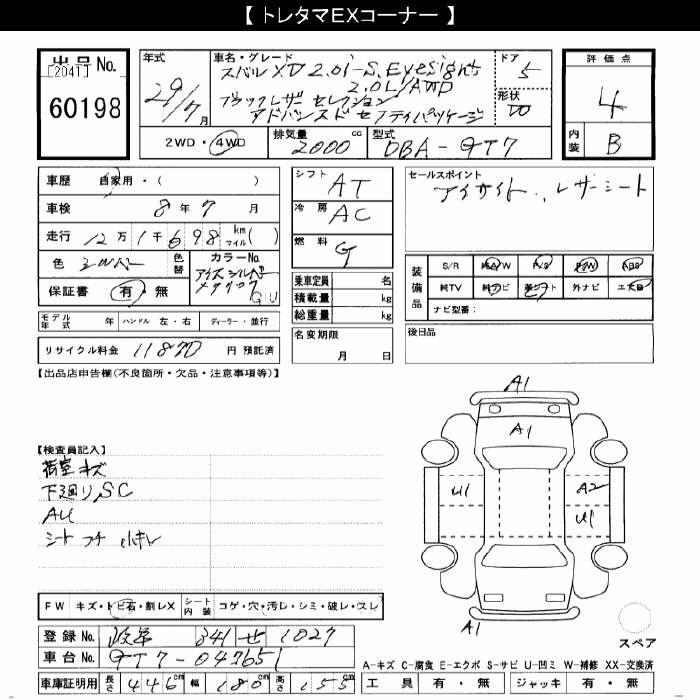 【 トレタマEXコーナー 】
出品No.
[2041]
60198
年式
29/7月
車名・グレード
スバル XV 2.0i-S EyeSight
2.0L/AWD
ブラックレザー セレクション
アドバンスド セフティパッケージ
ドア
5
形状
評価点
4
内装
B
2WD・4WD
排気量
2000cc
型式
DBA-GT7
車歴 自家用・( )
車検 8年7月
走行 12万1千698km マイル( )
色 シルバー
色替
カラーNo.
アイスシルバー
メタリック
G1U
保証書 有・無
シフト AT
冷房 AC
燃料 G
セールスポイント
アイサイト、レザーシート
乗車定員 名
積載量 kg
総重量 kg
装備品
S/R 純A/W P/S P/W ABS
純TV 純ナビ 革シート 外ナビ エアB
ナビ型番:
モデル年式 年 ハンドル 左・右 ディーラー・並行
リサイクル料金 11870円 預託済
名変期限
月 日
後日品
【出品店申告欄(不良箇所・欠品・注意事項等)】
【検査員記入】
荷室 キズ
下廻り SC
AU
シート フチ 小キレ
A1
A1
U1
A2
U1
A1
スペア
FW キズ・トビ石・割レX
シート内装 コゲ・穴・汚レ・シミ・破レ・スレ
登録No. 岐阜 341 せ 1027
車台No. GT7-047651
車庫証明用 長さ 446cm 幅 180cm 高さ 155cm
A-キズ C-腐食 E-エクボ S-サビ U-凹ミ W-補修 XX-交換済
工具 有・無 ジャッキ 有・無